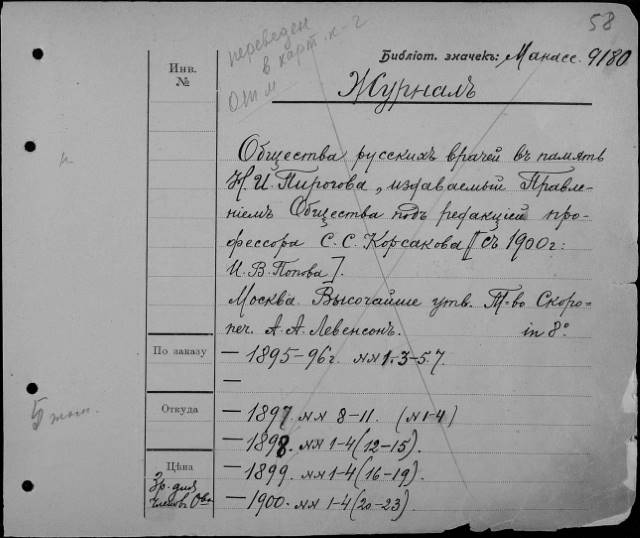 58
переведен
в карт. к-г
Библіот. значекъ: Манасс. 9/80
Инв.
№
Журналъ
Общества русскихъ врачей въ память
Н. И. Пирогова, издаваемый Правле-
ніемъ Общества подъ редакціей про-
фессора С. С. Корсакова [съ 1900 г:
И. В. Попова].
Москва. Высочайше утв. Т-во Скоро-
печ. А. А. Левенсонъ. in 8°.
По заказу
— 1895-96 г. №№ 1-3-5. 7.
—
Откуда
— 1897. №№ 8-11. (№ 1-4)
— 1898. №№ 1-4 (12-15).
Цѣна
— 1899. №№ 1-4 (16-19).
3 р. для
членовъ О-ва
— 1900. №№ 1-4 (20-23).